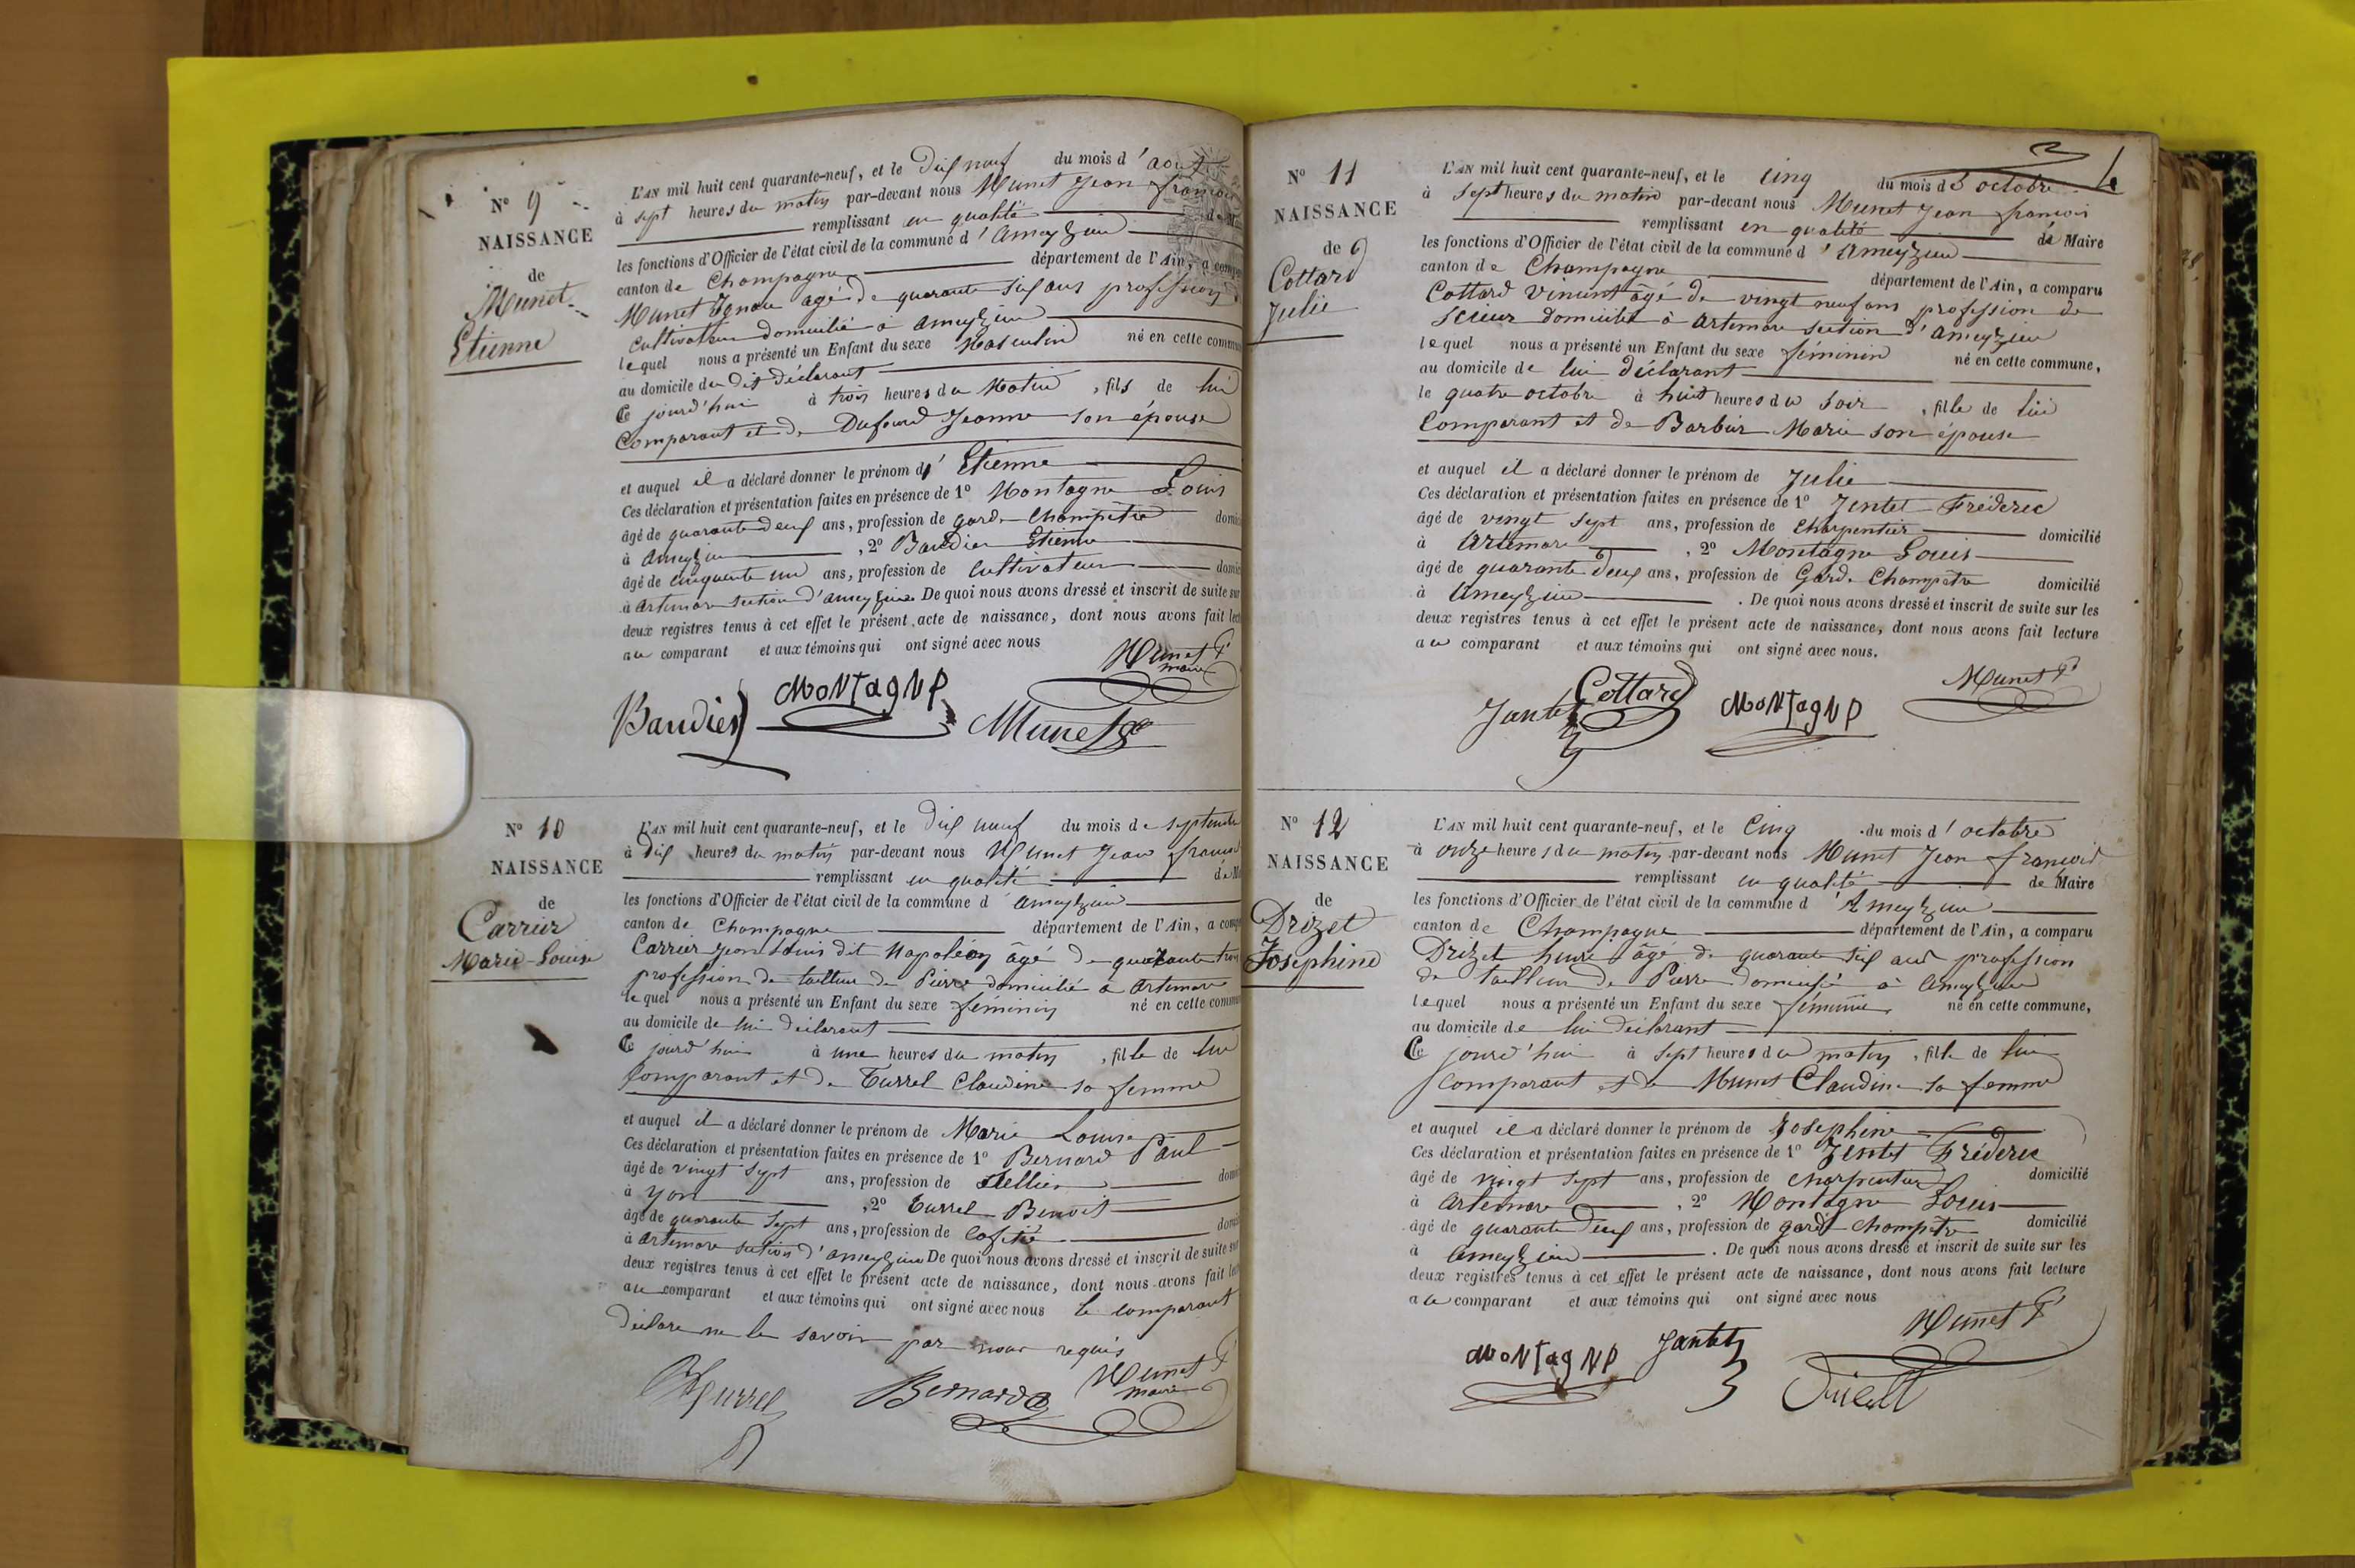 N° 9
NAISSANCE
de
Munet
Etienne
L'AN mil huit cent quarante-neuf, et le dix neuf du mois d'août
à sept heures du matin par-devant nous Munet Jean françois
remplissant en qualité de M
les fonctions d'Officier de l'état civil de la commune d'Ameyzieu
canton de Champagne département de l'Ain, a comp
Munet Ignace agé de quarante six ans profession d
cultivateur domicilié à Ameyzieu
lequel nous a présenté un Enfant du sexe Masculin né en cette commu
au domicile du dit déclarant
Ce jourd'hui à trois heures du Matin, fils de lui
Comparant et de Dufour Jeanne son épouse
et auquel il a déclaré donner le prénom d'Etienne
Ces déclaration et présentation faites en présence de 1° Montagne Louis
âgé de quarante deux ans, profession de garde Champêtre domici
à Ameyzieu, 2° Baudier Etienne
âgé de cinquante un ans, profession de Cultivateur domici
à Artemare section d'ameyzieu De quoi nous avons dressé et inscrit de suite sur
deux registres tenus à cet effet le présent acte de naissance, dont nous avons fait lect
au comparant et aux témoins qui ont signé avec nous
Munet f
maire
Baudier MoNTagNe Munet
N° 10
NAISSANCE
de
Carrier
Marie-Louise
L'AN mil huit cent quarante-neuf, et le dix neuf du mois de septembre
à dix heures du matin par-devant nous Munet Jean françois
remplissant en qualité de M
les fonctions d'Officier de l'état civil de la commune d ameyzieu
canton de Champagne département de l'Ain, a comp
Carrier Jean Louis dit Napoléon âgé de quarante trois
profession de tailleur de Pierre domicilié à Artemare
lequel nous a présenté un Enfant du sexe féminin né en cette commu
au domicile de lui déclarant
Ce jourd'hui à une heures du matin, fille de lui
Comparant et de Turrel Claudine sa femme
et auquel il a déclaré donner le prénom de Marie Louise
Ces déclaration et présentation faites en présence de 1° Bernard Paul
âgé de vingt sept ans, profession de Sellier domi
à Yon, 2° Turrel Benoit
âgé de quarante sept ans, profession de Cafetié domici
à Artemare section d'ameyzieu De quoi nous avons dressé et inscrit de suite sur
deux registres tenus à cet effet le présent acte de naissance, dont nous avons fait lec
au comparant et aux témoins qui ont signé avec nous le comparant
déclare ne le savoir par nous requis
Turrel Bernard Munet f
maire
N° 11
NAISSANCE
de
Cottard
Julie
L'AN mil huit cent quarante-neuf, et le cinq du mois d'octobre
à sept heures du matin par-devant nous Munet Jean françois
remplissant en qualité de Maire
les fonctions d'Officier de l'état civil de la commune d'Ameyzieu
canton de Champagne département de l'Ain, a comparu
Cottard Vincent âgé de vingt neuf ans profession de
scieur domicilié à Artemare section d'ameyzieu
lequel nous a présenté un Enfant du sexe féminin né en cette commune,
au domicile de lui déclarant
le quatre octobre à huit heures du soir, fille de lui
Comparant et de Barbier Marie son épouse
et auquel il a déclaré donner le prénom de Julie
Ces déclaration et présentation faites en présence de 1° Jentet Fréderec
âgé de vingt sept ans, profession de Charpentier domicilié
à Artemare, 2° Montagne Louis
âgé de quarante deux ans, profession de Garde Champêtre domicilié
à Ameyzieu. De quoi nous avons dressé et inscrit de suite sur les
deux registres tenus à cet effet le présent acte de naissance, dont nous avons fait lecture
au comparant et aux témoins qui ont signé avec nous.
Jantet Cottard MoNTagNe Munet f
N° 12
NAISSANCE
de
Drizet
Josephine
L'AN mil huit cent quarante-neuf, et le Cinq du mois d'octobre
à onze heures du matin par-devant nous Munet Jean françois
remplissant en qualité de Maire
les fonctions d'Officier de l'état civil de la commune d'Ameyzieu
canton de Champagne département de l'Ain, a comparu
Drizet âgé de quarante six ans profession
de tailleur de Pierre domicilié à Ameyzieu
lequel nous a présenté un Enfant du sexe féminin né en cette commune,
au domicile de lui déclarant
Ce jourd'hui à sept heures du matin, fille de lui
Comparant et de Munet Claudine sa femme
et auquel il a déclaré donner le prénom de Josephine
Ces déclaration et présentation faites en présence de 1° Jentet Fréderec
âgé de vingt sept ans, profession de charpentier domicilié
à Artemare, 2° Montagne Louis
âgé de quarante deux ans, profession de garde champêtre domicilié
à Ameyzieu. De quoi nous avons dressé et inscrit de suite sur les
deux registres tenus à cet effet le présent acte de naissance, dont nous avons fait lecture
au comparant et aux témoins qui ont signé avec nous
Munet f
MoNTagNe Jantet